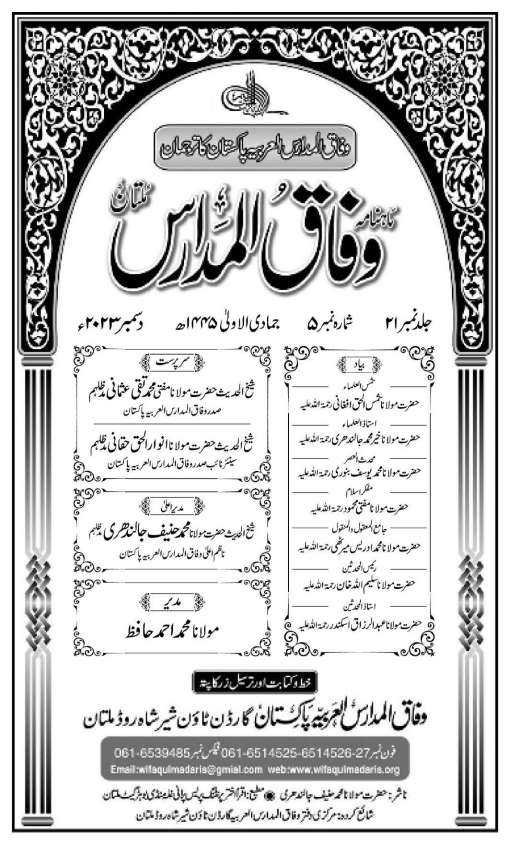 وفاق المدارس العربیہ پاکستان کا ترجمان
ماہنامہ
وفاق المدارس
ملتان
جلد نمبر ۲۱ شمارہ نمبر ۵ جمادی الاولیٰ ۱۴۴۵ھ دسمبر ۲۰۲۳ء
بیاد
شمس العلماء
حضرت مولانا شمس الحق افغانی رحمۃ اللہ علیہ
استاذ العلماء
حضرت مولانا خیر محمد جالندھری رحمۃ اللہ علیہ
محدث العصر
حضرت مولانا محمد یوسف بنوری رحمۃ اللہ علیہ
مفکر اسلام
حضرت مولانا مفتی محمود رحمۃ اللہ علیہ
جامع المعقول والمنقول
حضرت مولانا محمد ادریس میرٹھی رحمۃ اللہ علیہ
رئیس المحدثین
حضرت مولانا سلیم اللہ خان رحمۃ اللہ علیہ
استاذ المحدثین
حضرت مولانا عبد الرزاق اسکندر رحمۃ اللہ علیہ
سرپرست
شیخ الحدیث حضرت مولانا مفتی محمد تقی عثمانی مدظلہم
صدر وفاق المدارس العربیہ پاکستان
شیخ الحدیث حضرت مولانا انوار الحق حقانی مدظلہم
سینئر نائب صدر وفاق المدارس العربیہ پاکستان
مدیر اعلیٰ
شیخ الحدیث حضرت مولانا محمد حنیف جالندھری مدظلہم
ناظم اعلیٰ وفاق المدارس العربیہ پاکستان
مدیر
مولانا محمد احمد حافظ
خط و کتابت اور ترسیل زر کا پتہ
وفاق المدارس العربیہ پاکستان گارڈن ٹاؤن شیر شاہ روڈ ملتان
فون نمبر 061-6514525-6514526-27 فیکس نمبر 061-6539485
Email:wifaqulmadaris@gmial.com web:www.wifaqulmadaris.org
ناشر: حضرت مولانا محمد حنیف جالندھری مطبع: اقرأ اختر پرنٹنگ پریس پرانی غلہ منڈی بوہڑ گیٹ ملتان
شائع کردہ: مرکزی دفتر وفاق المدارس العربیہ گارڈن ٹاؤن شیر شاہ روڈ ملتان